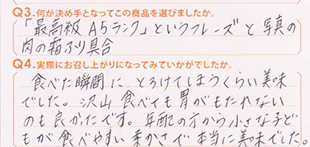 Q3.何が決め手となってこの商品を選びましたか。
「最高級 A5ランク」というフレーズと写真の
肉の霜ふり具合
Q4.実際にお召し上がりになってみていかがでしたか。
食べた瞬間に、とろけてしまうくらい美味
でした。沢山食べても胃がもたれない
のも良かったです。年配の方から小さな子ど
もが食べやすい柔かさで本当に美味でした。